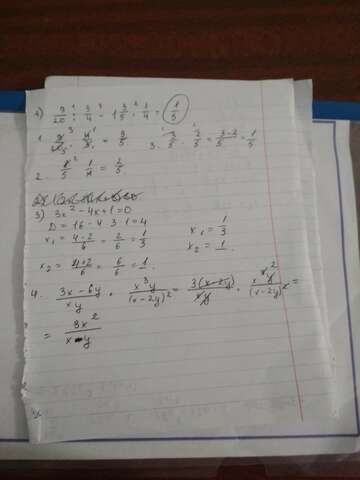 2) 9/20 : 3/4 - 1 3/5 · 1/4 = 1/5
1. 9/20 · 4/3 = 3/5    3. 3/5 - 2/5 = (3-2)/5 = 1/5
2. 8/5 · 1/4 = 2/5
3) 3x² - 4x + 1 = 0
D = 16 - 4 · 3 · 1 = 4
x₁ = (4-2)/6 = 2/6 = 1/3    x₁ = 1/3
x₂ = (4+2)/6 = 6/6 = 1.    x₂ = 1.
4. (3x - 6y)/xy · x³y/(x-2y)² = 3(x-2y)/xy · x³y/(x-2y)² =
= 3x²/(x-y)